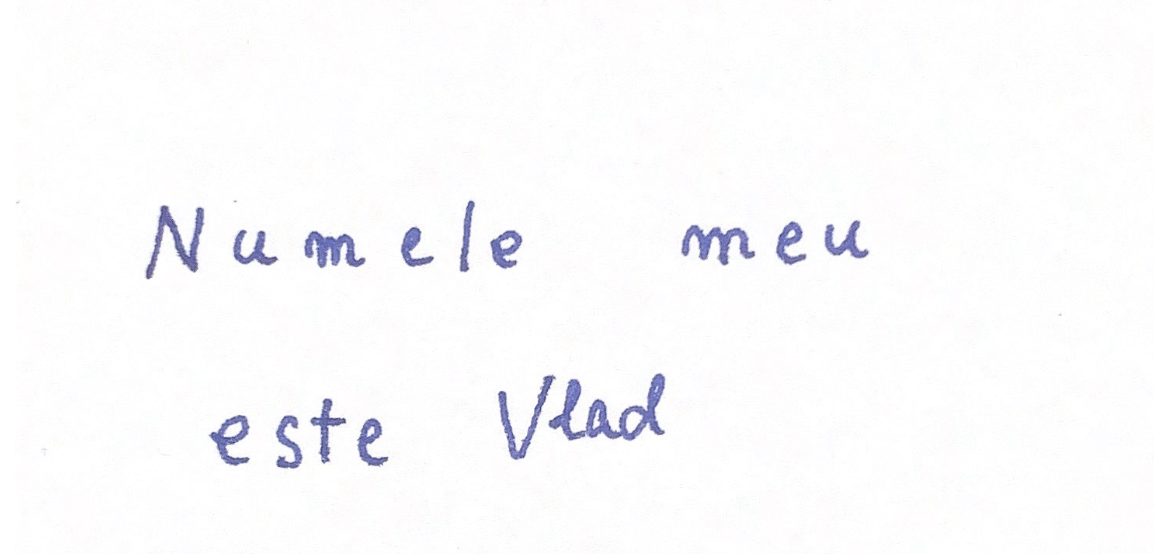 Numele meu
este Vlad